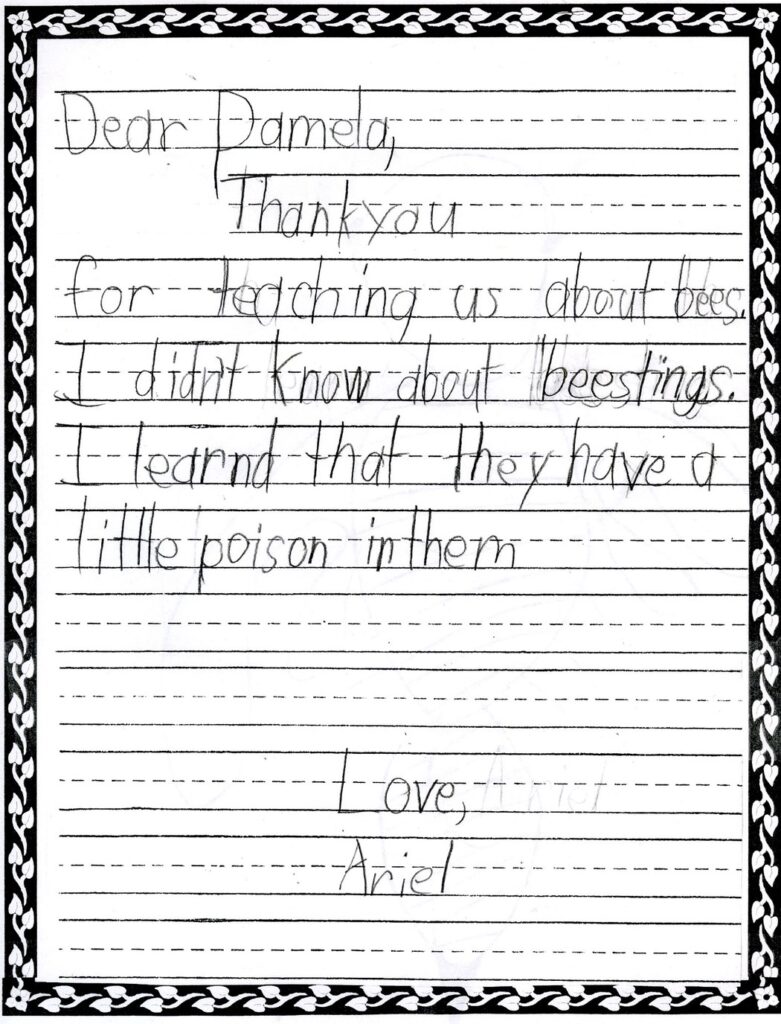 Dear Pamela,
Thankyou
for teaching us about bees.
I didn't know about beestings.
I learnd that they have a
little poison in them
Love,
Ariel